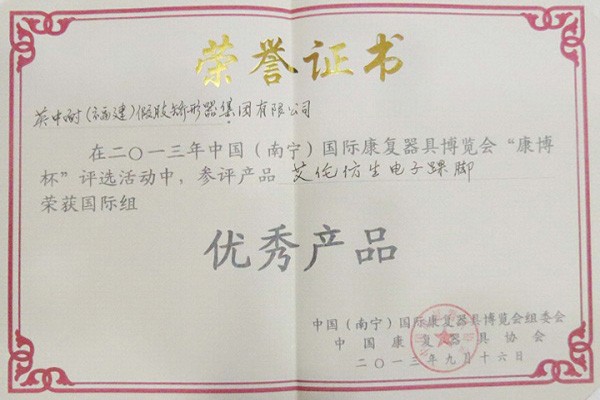 荣誉证书
英中耐(福建)假肢矫形器集团有限公司
在二〇一三年中国(南宁)国际康复器具博览会“康博
杯”评选活动中,参评产品 艾伦仿生电子踝脚
荣获国际组
优秀产品
中国(南宁)国际康复器具博览会组委会
中国康复器具协会
二〇一三年九月十六日